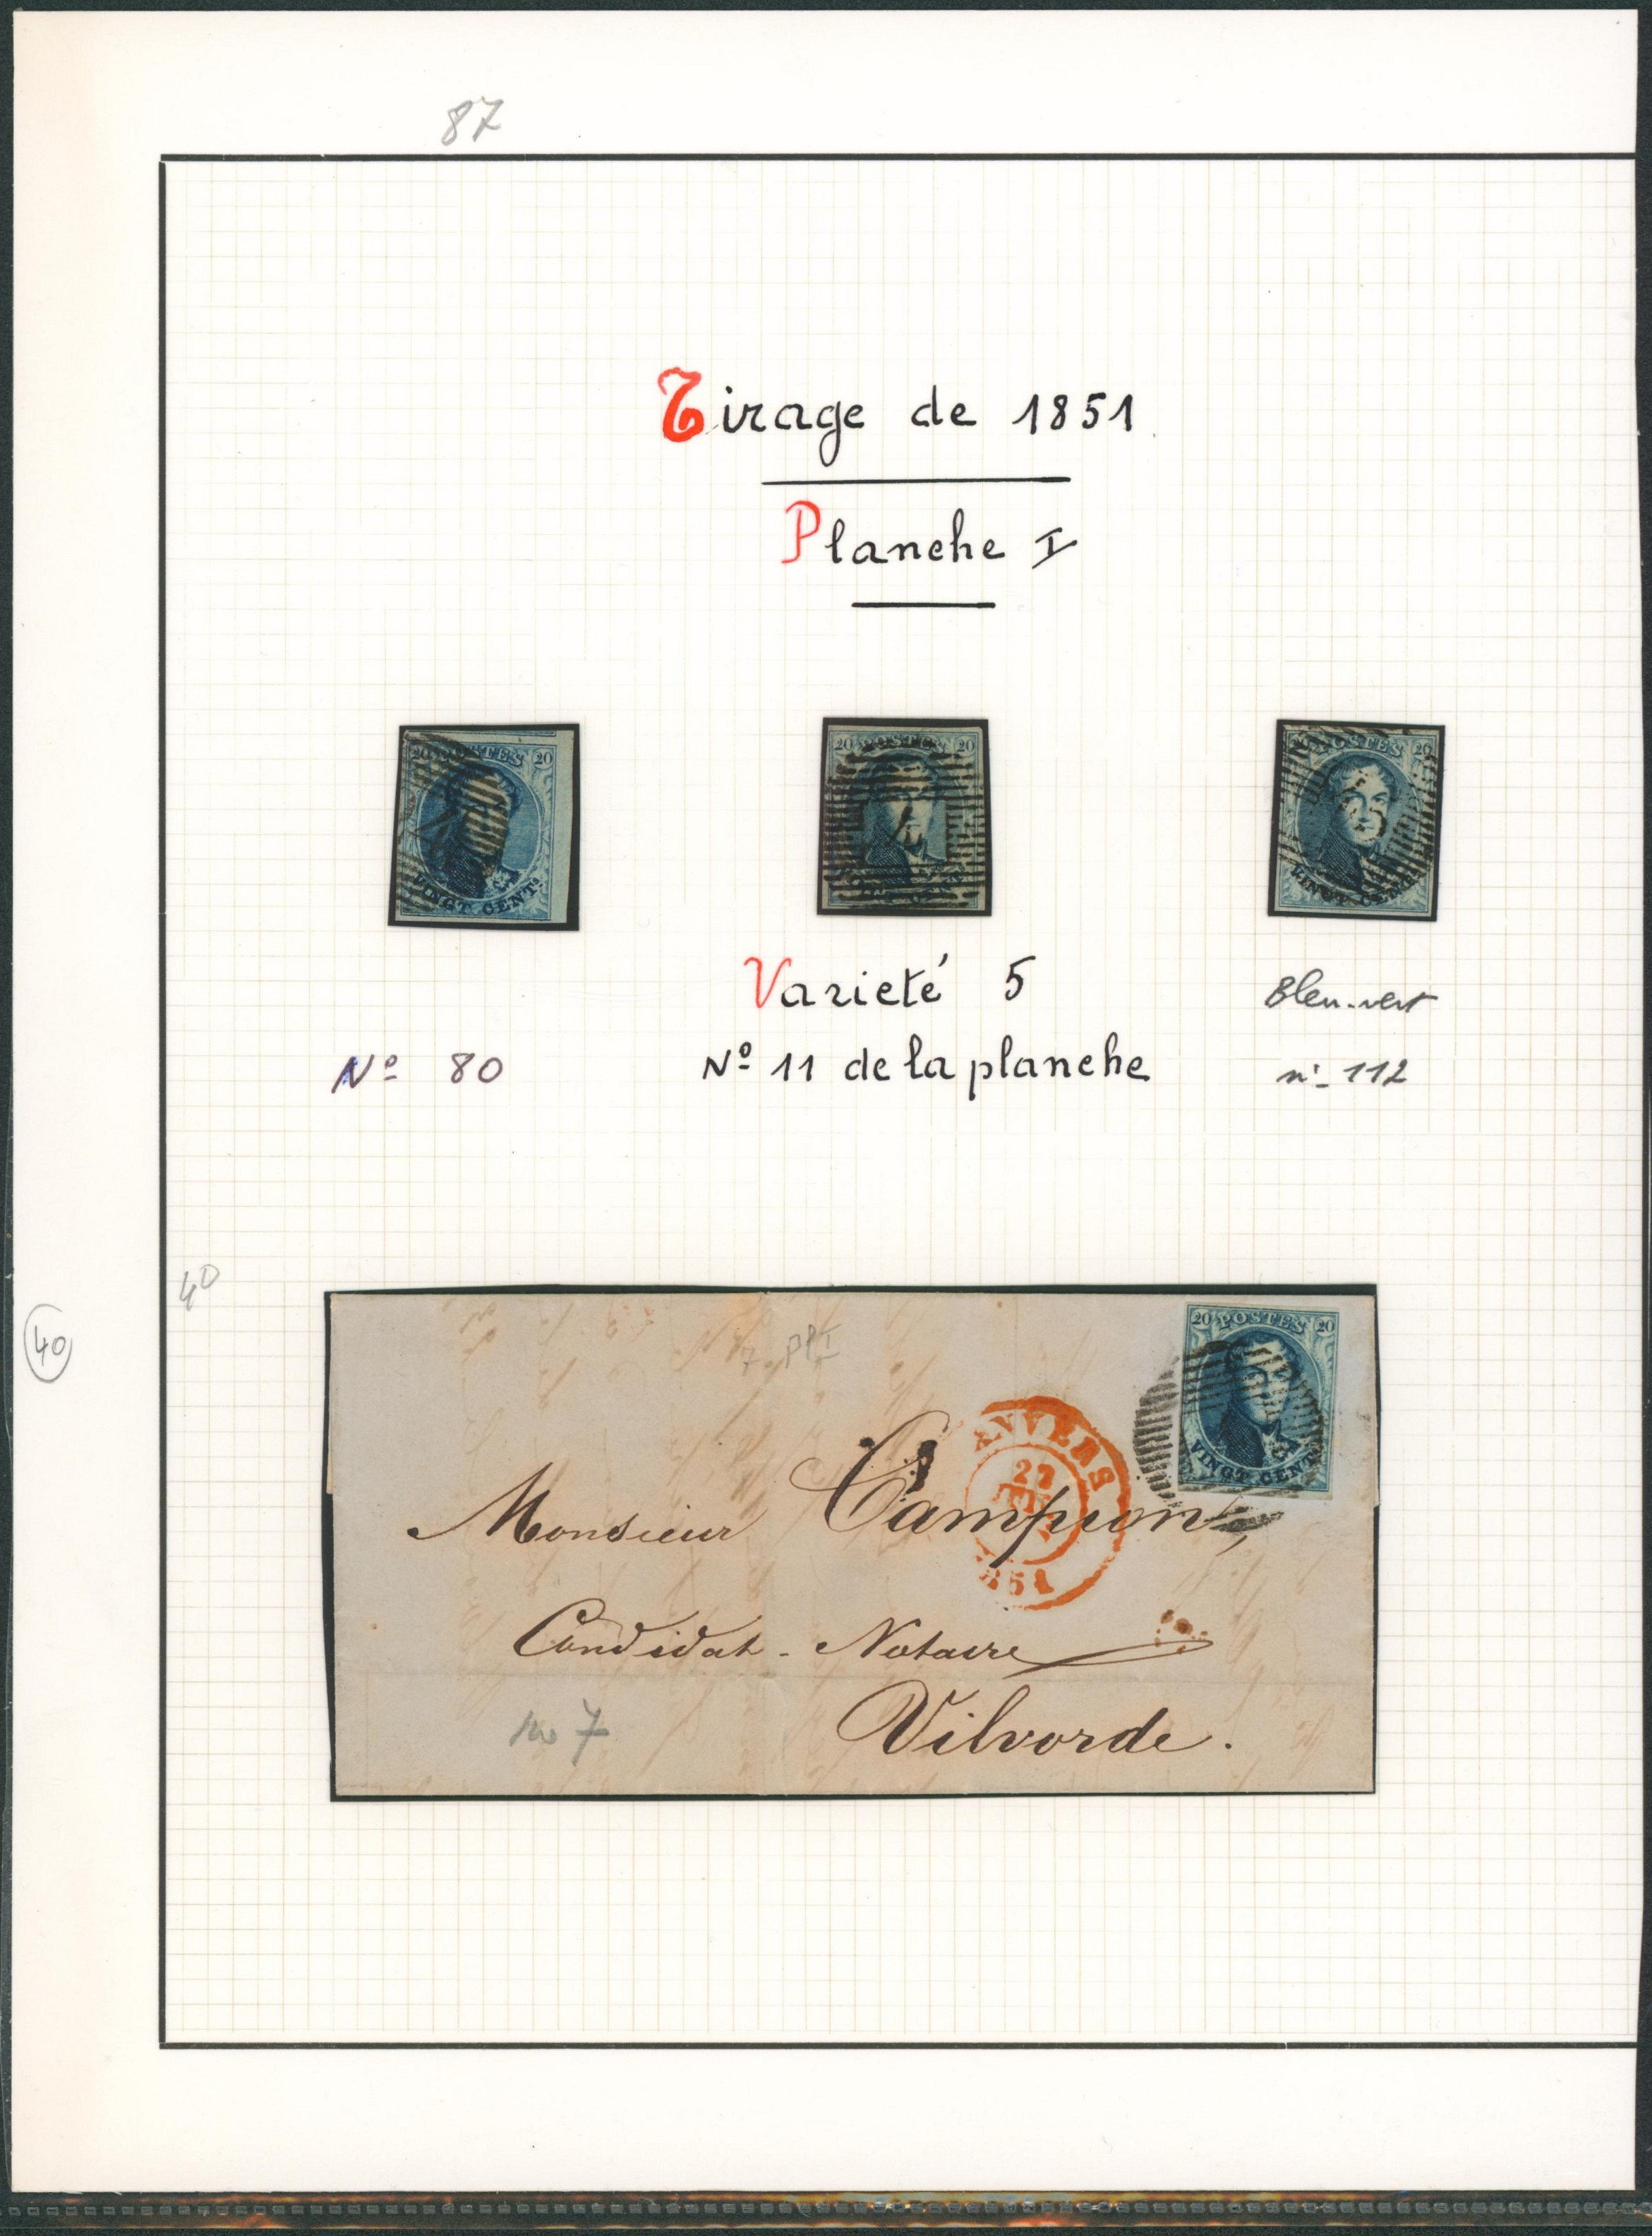 87
Tirage de 1851
Planche I
20 POSTES 20
VINGT CENTS
20 POSTES 20
POSTES 20
Varieté 5
Bleu-vert
No 80
No 11 de la planche
no 112
40
40
7 Pl I
20 POSTES 20
VINGT CENTS
ANVERS
27
1851
Monsieur Campion,
Candidat - Notaire
Vilvorde.
no 7